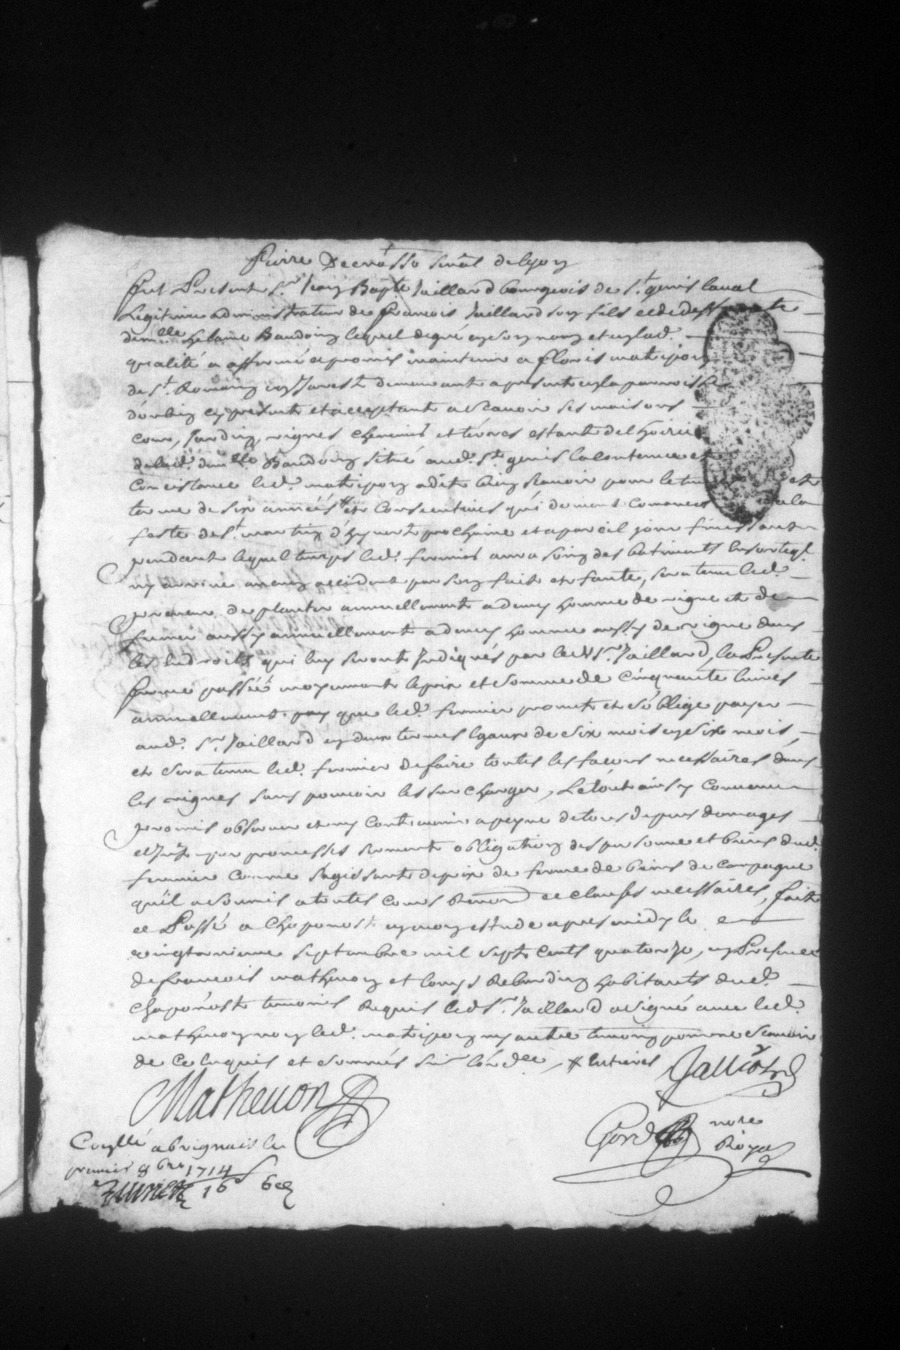 Pierre Decrosso senal de lyon
fut Present Sr Jean Bapte Jaillard bourgeois de St genis laval
Legitime administrateur de francois Jaillard son fils et de deffunte
demlle helaine Baudoin lequel de gré en son nom et en lad.
qualité a affermé et promis maintenir a floris matipon
de St Romain en Jarest demeurant a present en la paroisse
dorlien cy present et acceptant a scavoir ses maisons
cour, Jardin vignes chemins et terres estant de l'hoirie
de lad. demlle Baudoin situé aud. St genis la contenue et
concistance led. matipon a dit bien scavoir pour le et
terme de six années et consecutives qui devront comancer a la
feste de St martin d'hyvert prochaine et a pareil jour finissant
pendant lequel temps led. fermier aura soin des batiments en sorte ql
ny arrive aucun accident par son fait et faute, sera tenu led.
preneur de planter annuellement a demy homme de vigne et de
fumer aussy annuellement a demy homme aussy de vigne dans
les endroits qui luy seront Indiqués par led Sr Jaillard, la Presente
ferme passée moyenant le prix et somme de cinquante livres
annuellement que led. fermier promet et s'oblige payer
aud. Sr Jaillard en deux termes egaux de six mois en six mois
et sera tenu led. fermier de faire toutes les facons necessaires dans
les vignes sans pouvoir les surcharger, Le tout ainsy convenu
promis observer et ny contrevenir a peyne de tous depens domages
et Jnts par promesses serment obligation des personne et biens dud.
fermier comme s'agissant de prix de ferme de biens de campagne
qu'il a soumis a toutes cours Renon et clauses necessaires, fait
et Passé a Chaponost en mon estude apres midy le
vingtneuvieme septembre mil sept cents quatorze, en Presence
de francois mathevon et louys habitants dud.
Chaponost temoins Requis led Sr Jaillard a signé avec led.
mathevon non led. matipon ny autre temoin pour ne scavoir
de ce enquis et sommés * entieres
Jaillard
Mathevon
notre
Royal
Conllé a brignais le
premier 8bre 1714
16s 6d